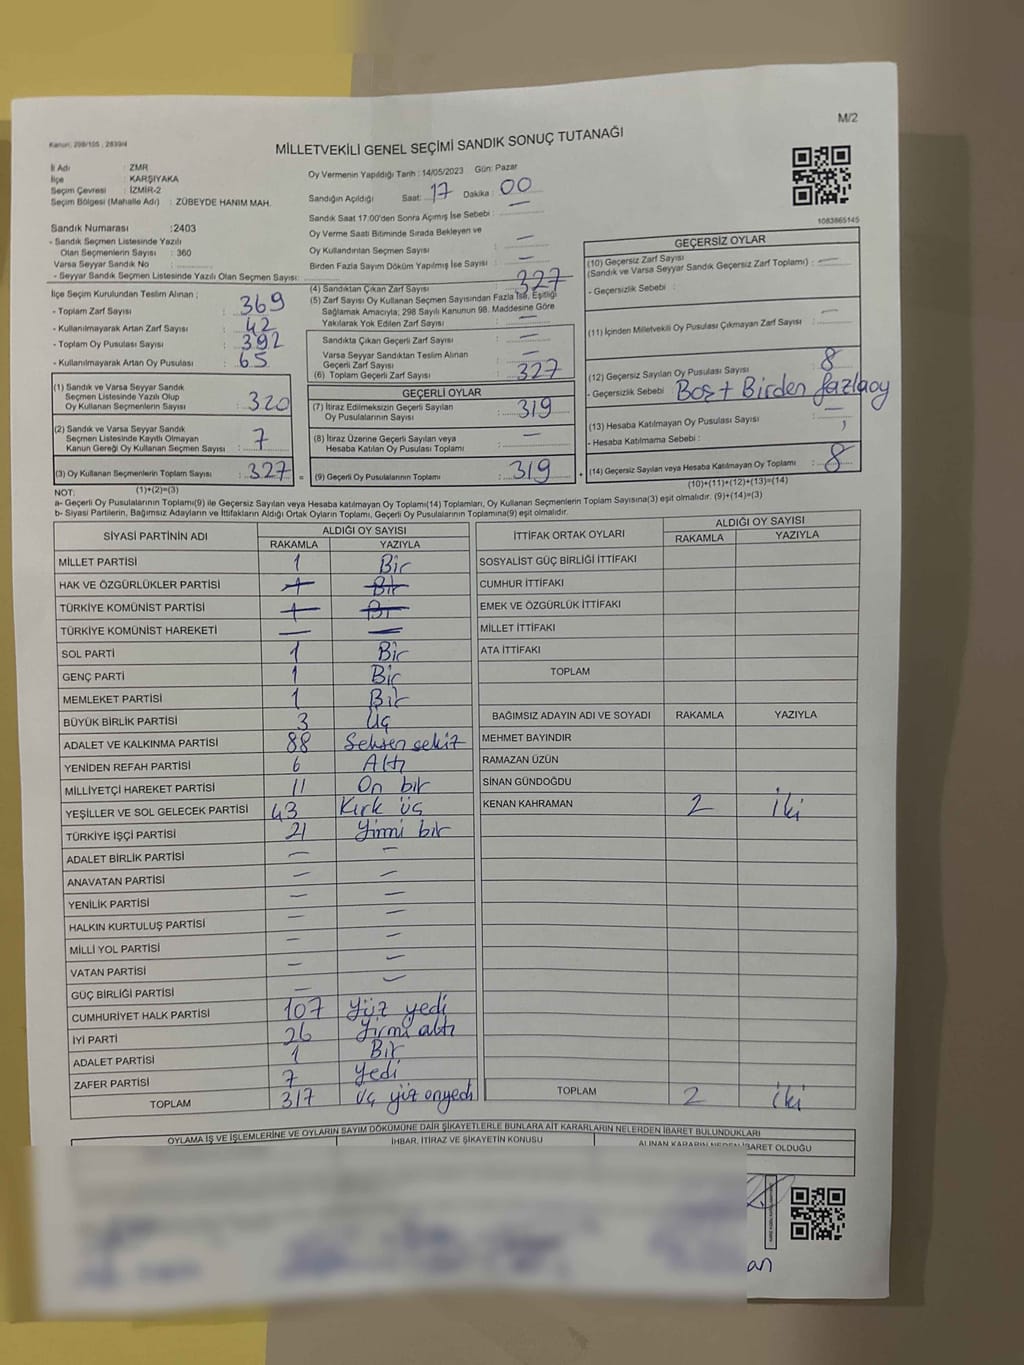 M/2
Kanun: 298/105 ; 2839/4
MİLLETVEKİLİ GENEL SEÇİMİ SANDIK SONUÇ TUTANAĞI
İl Adı : ZMR
İlçe : KARŞIYAKA
Seçim Çevresi : İZMİR-2
Seçim Bölgesi (Mahalle Adı) : ZÜBEYDE HANIM MAH.
Oy Vermenin Yapıldığı Tarih : 14/05/2023 Gün: Pazar
Sandığın Açıldığı Saat: 17 Dakika : 00
Sandık Saat 17:00'den Sonra Açımış İse Sebebi : —
Oy Verme Saati Bitiminde Sırada Bekleyen ve
Oy Kullandırılan Seçmen Sayısı : —
Birden Fazla Sayım Döküm Yapılmış İse Sayısı : —
1083865145
Sandık Numarası :2403
- Sandık Seçmen Listesinde Yazılı
Olan Seçmenlerin Sayısı : 360
Varsa Seyyar Sandık No :
- Seyyar Sandık Seçmen Listesinde Yazılı Olan Seçmen Sayısı:
İlçe Seçim Kurulundan Teslim Alınan ;
- Toplam Zarf Sayısı : 369
- Kullanılmayarak Artan Zarf Sayısı : 42
- Toplam Oy Pusulası Sayısı : 392
- Kullanılmayarak Artan Oy Pusulası : 65
(1) Sandık ve Varsa Seyyar Sandık
Seçmen Listesinde Yazılı Olup
Oy Kullanan Seçmenlerin Sayısı : 320
(2) Sandık ve Varsa Seyyar Sandık
Seçmen Listesinde Kayıtlı Olmayan
Kanun Gereği Oy Kullanan Seçmen Sayısı : 7
(3) Oy Kullanan Seçmenlerin Toplam Sayısı : 327
(1)+(2)=(3)
(4) Sandıktan Çıkan Zarf Sayısı : 327
(5) Zarf Sayısı Oy Kullanan Seçmen Sayısından Fazla İse, Eşitliği
Sağlamak Amacıyla; 298 Sayılı Kanunun 98. Maddesine Göre
Yakılarak Yok Edilen Zarf Sayısı : —
Sandıkta Çıkan Geçerli Zarf Sayısı : —
Varsa Seyyar Sandıktan Teslim Alınan
Geçerli Zarf Sayısı : —
(6) Toplam Geçerli Zarf Sayısı : 327
GEÇERLİ OYLAR
(7) İtiraz Edilmeksizin Geçerli Sayılan
Oy Pusulalarının Sayısı : 319
(8) İtiraz Üzerine Geçerli Sayılan veya
Hesaba Katılan Oy Pusulası Toplamı : —
= (9) Geçerli Oy Pusulalarının Toplamı : 319
GEÇERSİZ OYLAR
(10) Geçersiz Zarf Sayısı
(Sandık ve Varsa Seyyar Sandık Geçersiz Zarf Toplamı) : —
- Geçersizlik Sebebi :
(11) İçinden Milletvekili Oy Pusulası Çıkmayan Zarf Sayısı : —
(12) Geçersiz Sayılan Oy Pusulası Sayısı : 8
- Geçersizlik Sebebi : Boş + Birden fazla oy
(13) Hesaba Katılmayan Oy Pusulası Sayısı : —
- Hesaba Katılmama Sebebi :
+ (14) Geçersiz Sayılan veya Hesaba Katılmayan Oy Toplamı : 8
(10)+(11)+(12)+(13)=(14)
NOT:
a- Geçerli Oy Pusulalarının Toplamı(9) ile Geçersiz Sayılan veya Hesaba katılmayan Oy Toplamı(14) Toplamları, Oy Kullanan Seçmenlerin Toplam Sayısına(3) eşit olmalıdır. (9)+(14)=(3)
b- Siyasi Partilerin, Bağımsız Adayların ve İttifakların Aldığı Ortak Oyların Toplamı, Geçerli Oy Pusulalarının Toplamına(9) eşit olmalıdır.
SİYASİ PARTİNİN ADI ALDIĞI OY SAYISI
RAKAMLA YAZIYLA
MİLLET PARTİSİ 1 Bir
HAK VE ÖZGÜRLÜKLER PARTİSİ 1 Bir
TÜRKİYE KOMÜNİST PARTİSİ 1 Bir
TÜRKİYE KOMÜNİST HAREKETİ — —
SOL PARTİ 1 Bir
GENÇ PARTİ 1 Bir
MEMLEKET PARTİSİ 1 Bir
BÜYÜK BİRLİK PARTİSİ 3 Üç
ADALET VE KALKINMA PARTİSİ 88 Seksen sekiz
YENİDEN REFAH PARTİSİ 6 Altı
MİLLİYETÇİ HAREKET PARTİSİ 11 On bir
YEŞİLLER VE SOL GELECEK PARTİSİ 43 Kırk üç
TÜRKİYE İŞÇİ PARTİSİ 21 Yirmi bir
ADALET BİRLİK PARTİSİ — —
ANAVATAN PARTİSİ — —
YENİLİK PARTİSİ — —
HALKIN KURTULUŞ PARTİSİ — —
MİLLİ YOL PARTİSİ — —
VATAN PARTİSİ — —
GÜÇ BİRLİĞİ PARTİSİ — —
CUMHURİYET HALK PARTİSİ 107 Yüz yedi
İYİ PARTİ 26 Yirmi altı
ADALET PARTİSİ 1 Bir
ZAFER PARTİSİ 7 Yedi
TOPLAM 317 Üç yüz onyedi
İTTİFAK ORTAK OYLARI ALDIĞI OY SAYISI
RAKAMLA YAZIYLA
SOSYALİST GÜÇ BİRLİĞİ İTTİFAKI
CUMHUR İTTİFAKI
EMEK VE ÖZGÜRLÜK İTTİFAKI
MİLLET İTTİFAKI
ATA İTTİFAKI
TOPLAM
BAĞIMSIZ ADAYIN ADI VE SOYADI RAKAMLA YAZIYLA
MEHMET BAYINDIR
RAMAZAN ÜZÜN
SİNAN GÜNDOĞDU
KENAN KAHRAMAN 2 İki
TOPLAM 2 İki
OYLAMA İŞ VE İŞLEMLERİNE VE OYLARIN SAYIM DÖKÜMÜNE DAİR ŞİKAYETLERLE BUNLARA AİT KARARLARIN NELERDEN İBARET BULUNDUKLARI
İHBAR, İTİRAZ VE ŞİKAYETİN KONUSU
ALINAN KARARIN NEDEN İBARET OLDUĞU
an